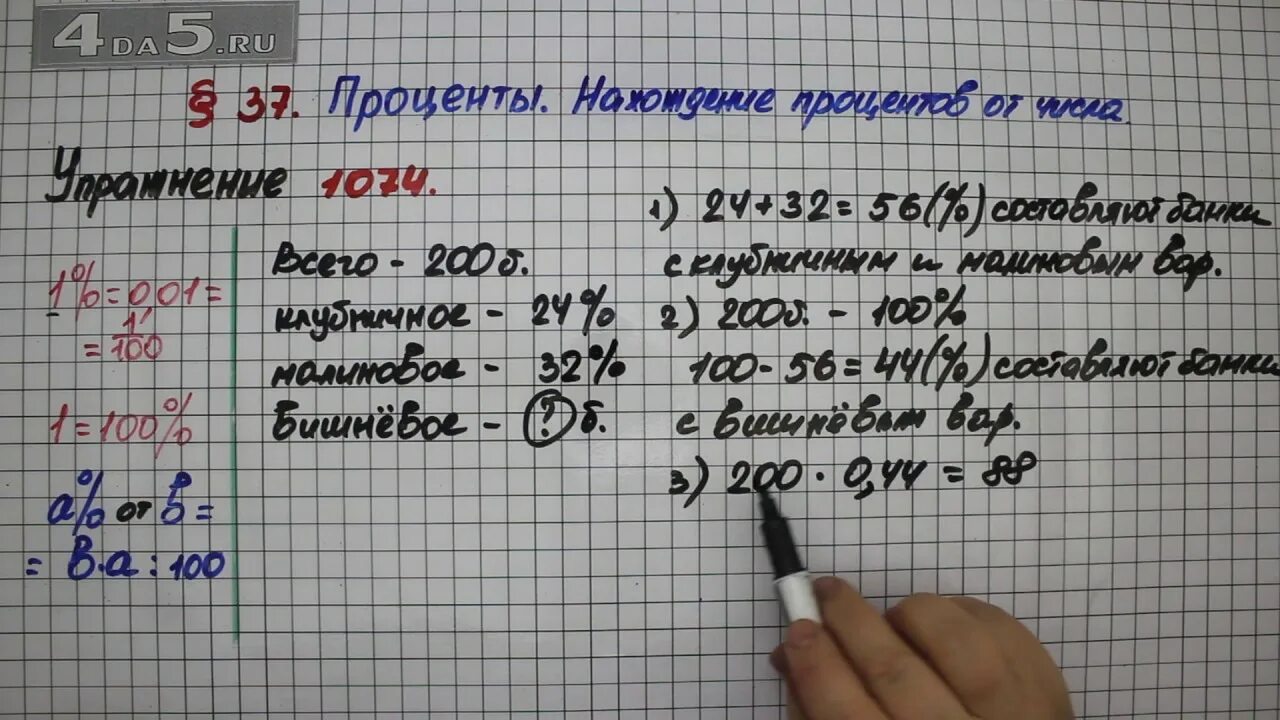 4DA5.RU
§ 37. Проценты. Нахождение процентов от числа.
Упражнение 1074.
1% = 0,01 =
= 1/100
1 = 100%
a% от b =
= b·a : 100
Всего - 200 б.
клубничное - 24%
малиновое - 32%
Вишнёвое - ? б.
1) 24 + 32 = 56 (%) составляют банки
с клубничным и малиновым вар.
2) 200 б. - 100%
100 - 56 = 44 (%) составляют банки
с вишнёвым вар.
3) 200 · 0,44 = 88